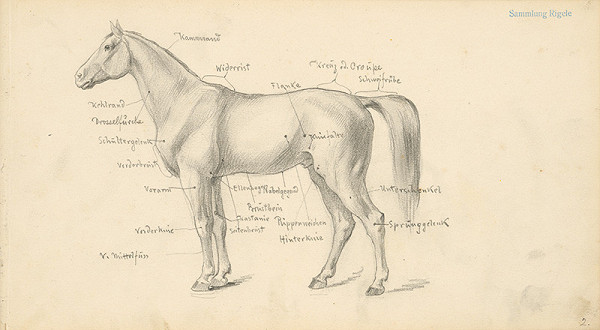 Sammlung Jögele
Kammrand
Widerrist
Kreuz od. Croupe
Schweifrübe
Flanke
Kehlrand
Drosselfurche
Schultergelenk
Kniefalte
Vorderbrust
Vorarm
Ellenbog
Nabelgegend
Unterschenkel
Brustbein
Kastanie
Rippenweichen
Sprunggelenk
Vorderknie
Seitenbrust
Hinterknie
V. Mittelfuss
2.